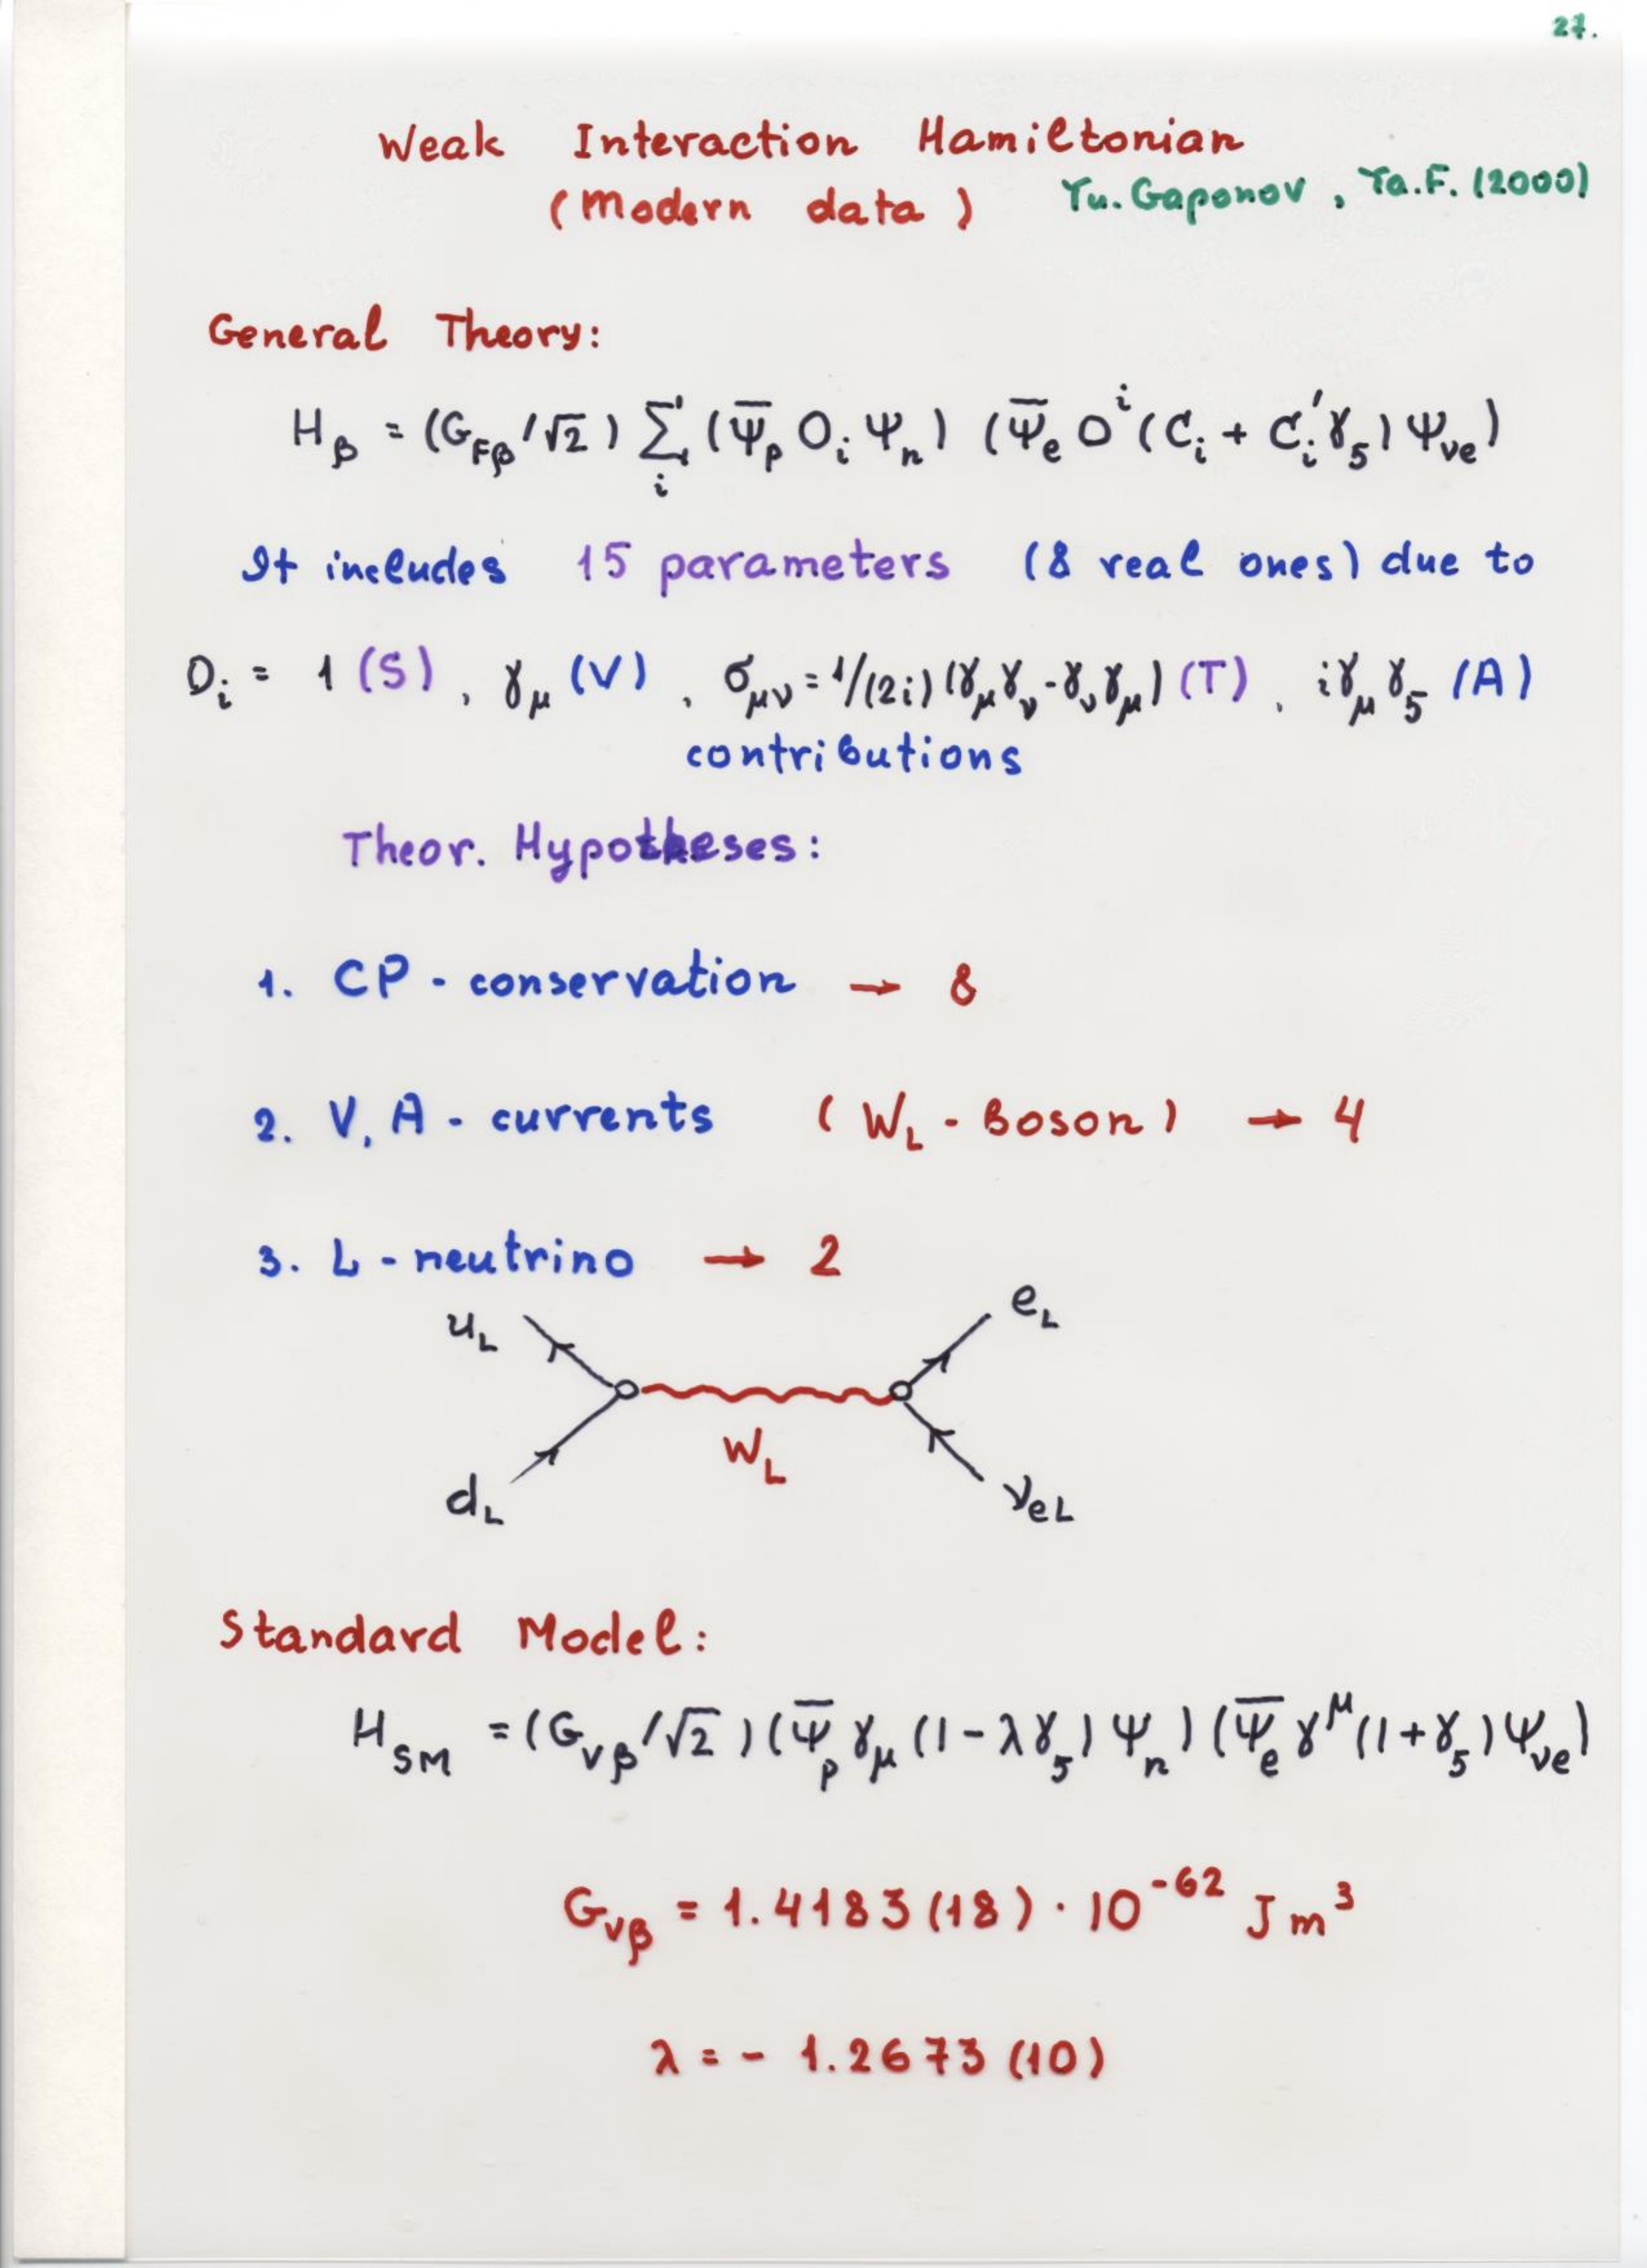 27.
Weak Interaction Hamiltonian
(Modern data) Yu. Gaponov, Ya.F. (2000)
General Theory:
H_β = (G_Fβ/√2) Σ_i (Ψ̄_p O_i Ψ_n) (Ψ̄_e O^i (C_i + C_i′γ_5) Ψ_νe)
It includes 15 parameters (8 real ones) due to
O_i = 1 (S), γ_μ (V), σ_μν = 1/(2i) (γ_μγ_ν - γ_νγ_μ) (T), iγ_μγ_5 (A)
contributions
Theor. Hypotheses:
1. CP - conservation → 8
2. V, A - currents (W_L - Boson) → 4
3. L - neutrino → 2
u_L e_L
W_L
d_L ν_eL
Standard Model:
H_SM = (G_Vβ/√2) (Ψ̄_p γ_μ (1 - λγ_5) Ψ_n) (Ψ̄_e γ^μ (1 + γ_5) Ψ_νe)
G_Vβ = 1.4183(18) · 10^-62 J m^3
λ = - 1.2673(10)